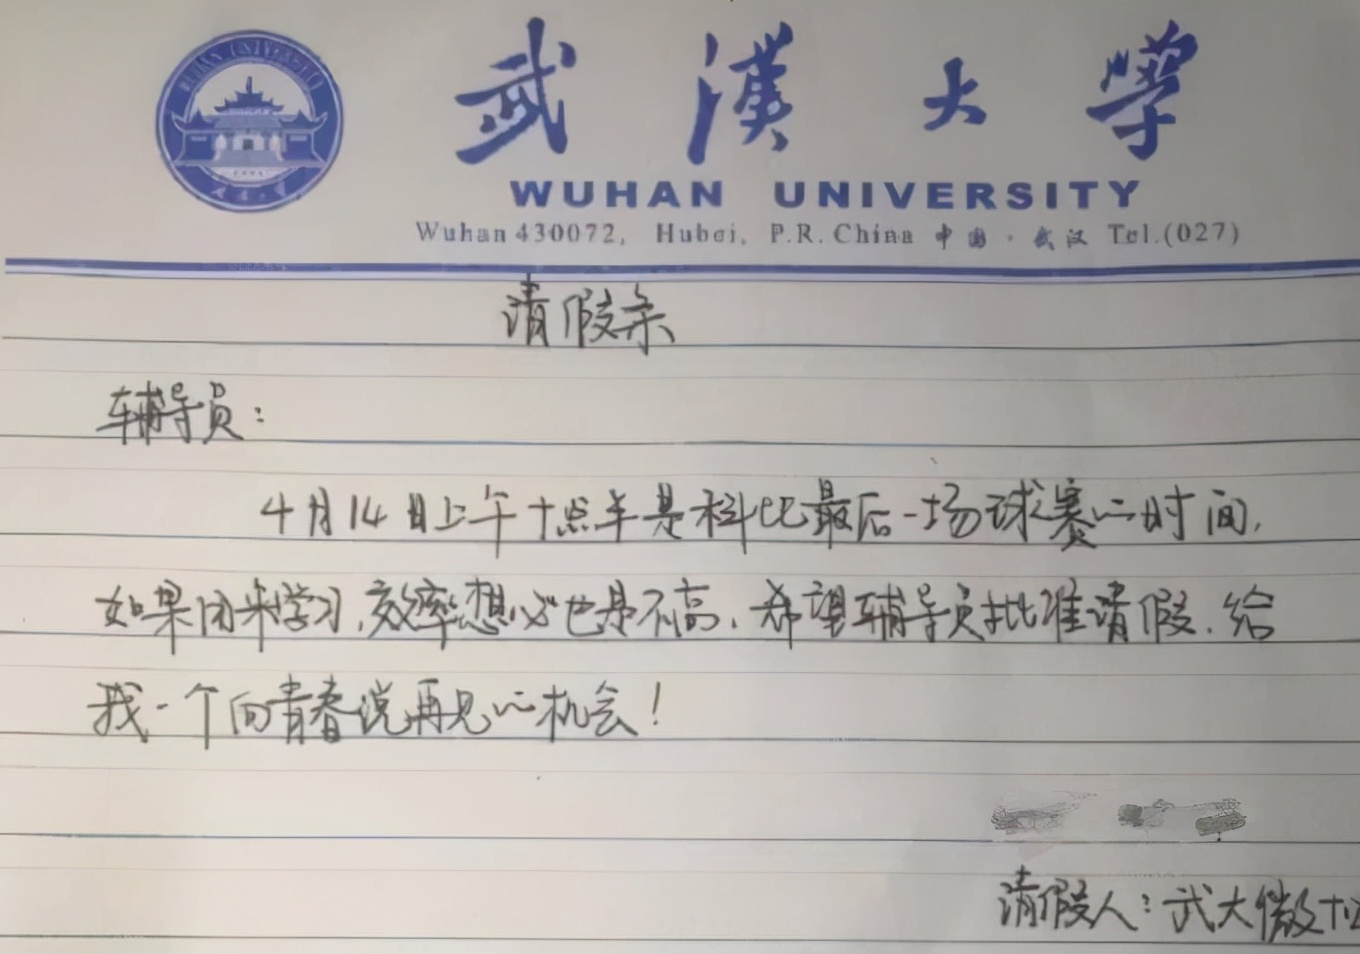 WUHAN UNIVERSITY
武漢大學
WUHAN UNIVERSITY
Wuhan 430072, Hubei, P.R. China 中国·武汉 Tel.(027)
请假条
辅导员:
4月14日上午十点半是科比最后一场球赛的时间,
如果用来学习,效率想必也是不高,希望辅导员批准请假,给
我一个向青春说再见的机会!
请假人:武大微